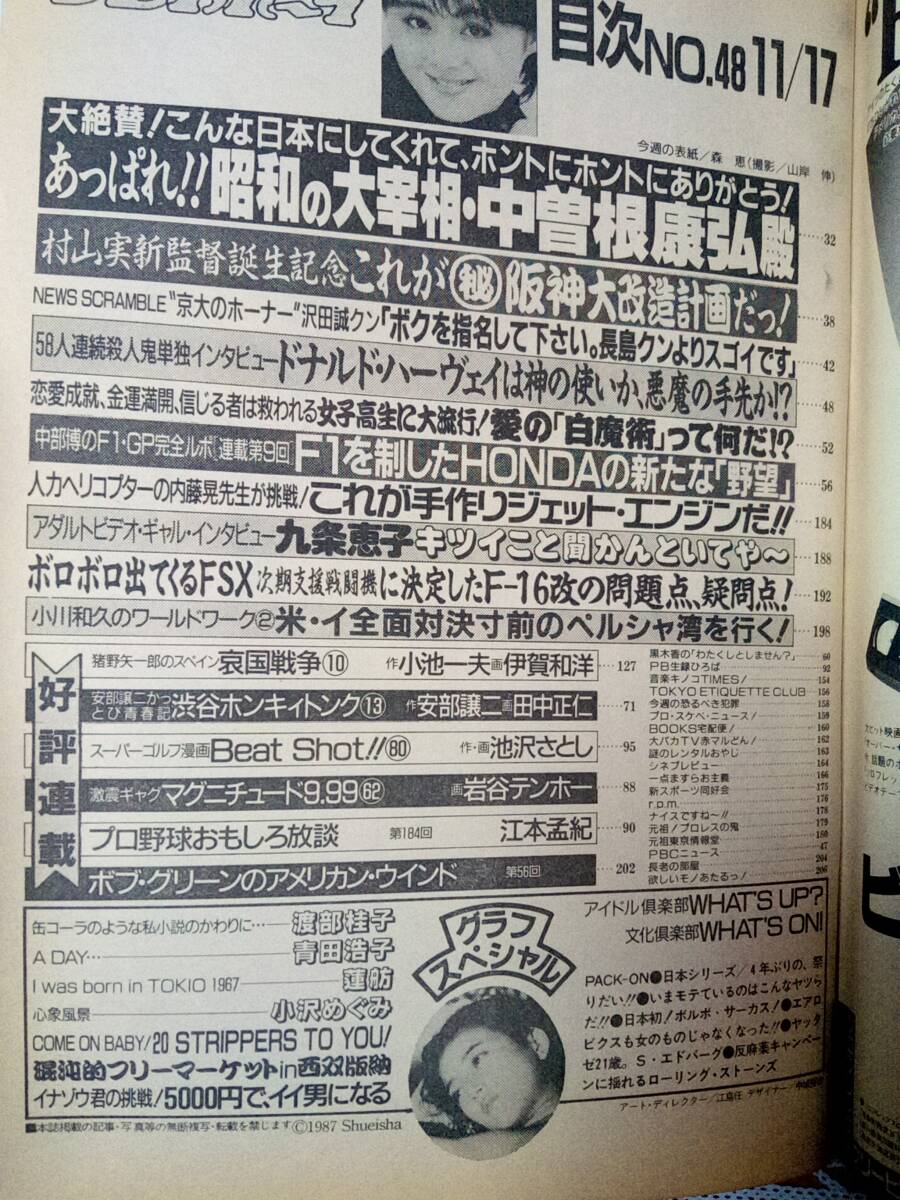 目次NO.48 11/17
今週の表紙/森 恵(撮影/山岸 伸)
大絶賛!こんな日本にしてくれて、ホントにホントにありがとう!
あっぱれ!!昭和の大宰相・中曽根康弘殿 32
村山実新監督誕生記念これが㊙阪神大改造計画だっ! 38
NEWS SCRAMBLE "京大のホーナー"沢田誠クン「ボクを指名して下さい。長島クンよりスゴイです」 42
58人連続殺人鬼単独インタビュードナルド・ハーヴェイは神の使いか、悪魔の手先か!? 48
恋愛成就、金運満開、信じる者は救われる女子高生に大流行!愛の「白魔術」って何だ!? 52
中部博のF1・GP完全ルポ[連載第9回]F1を制したHONDAの新たな「野望」 56
人力ヘリコプターの内藤晃先生が挑戦!これが手作りジェット・エンジンだ!! 184
アダルトビデオ・ギャル・インタビュー九条恵子キツイこと聞かんといてや〜 188
ボロボロ出てくるFSX次期支援戦闘機に決定したF-16改の問題点、疑問点! 192
小川和久のワールドワーク②米・イ全面対決寸前のペルシャ湾を行く! 198
好評連載
猪野矢一郎のスペイン哀国戦争⑩ 作小池一夫画伊賀和洋 127
安部譲二かっとび青春記渋谷ホンキィトンク⑬ 作安部譲二画田中正仁 71
スーパーゴルフ漫画Beat Shot!!㊿ 作・画池沢さとし 95
激震ギャグマグニチュード9.99㉒ 画岩谷テンホー 88
プロ野球おもしろ放談 第184回 江本孟紀 90
ボブ・グリーンのアメリカン・ウインド 第56回 202
黒木香の「わたくしとしません?」 60
PB生録ひろば 92
音楽キノコTIMES! 154
TOKYO ETIQUETTE CLUB 156
今週の恐るべき犯罪 158
プロ・スケベ・ニュース! 159
BOOKS宅配便! 160
大バカTV赤マルどん! 162
謎のレンタルおやじ 163
シネプレビュー 164
一点ますらお主義 166
新スポーツ同好会 175
r.p.m. 176
ナイスですね〜!! 178
元祖!プロレスの鬼 179
元祖東京情報堂 180
PBCニュース 47
長老の部屋 204
欲しいモノあたるっ! 206
缶コーラのような私小説のかわりに… 渡部桂子
A DAY… 青田浩子
I was born in TOKIO 1967 蓮舫
心象風景 小沢めぐみ
COME ON BABY! 20 STRIPPERS TO YOU!
混沌的フリーマーケットin西双版納
イナゾウ君の挑戦!5000円で、イイ男になる
グラフスペシャル
アイドル倶楽部WHAT'S UP?
文化倶楽部WHAT'S ON!
PACK-ON●日本シリーズ/4年ぶりの、祭
りだい!!●いまモテているのはこんなヤツら
だ!!●日本初!ボルボ・サーカス!●エアロ
ビクスも女のものじゃなくなった!!●ヤッタ
ゼ21歳。S・エドバーグ●反麻薬キャンペー
ンに揺れるローリング・ストーンズ
アート・ディレクター/江島任 デザイナー/
■本誌掲載の記事・写真等の無断複写・転載を禁じます©1987 Shueisha